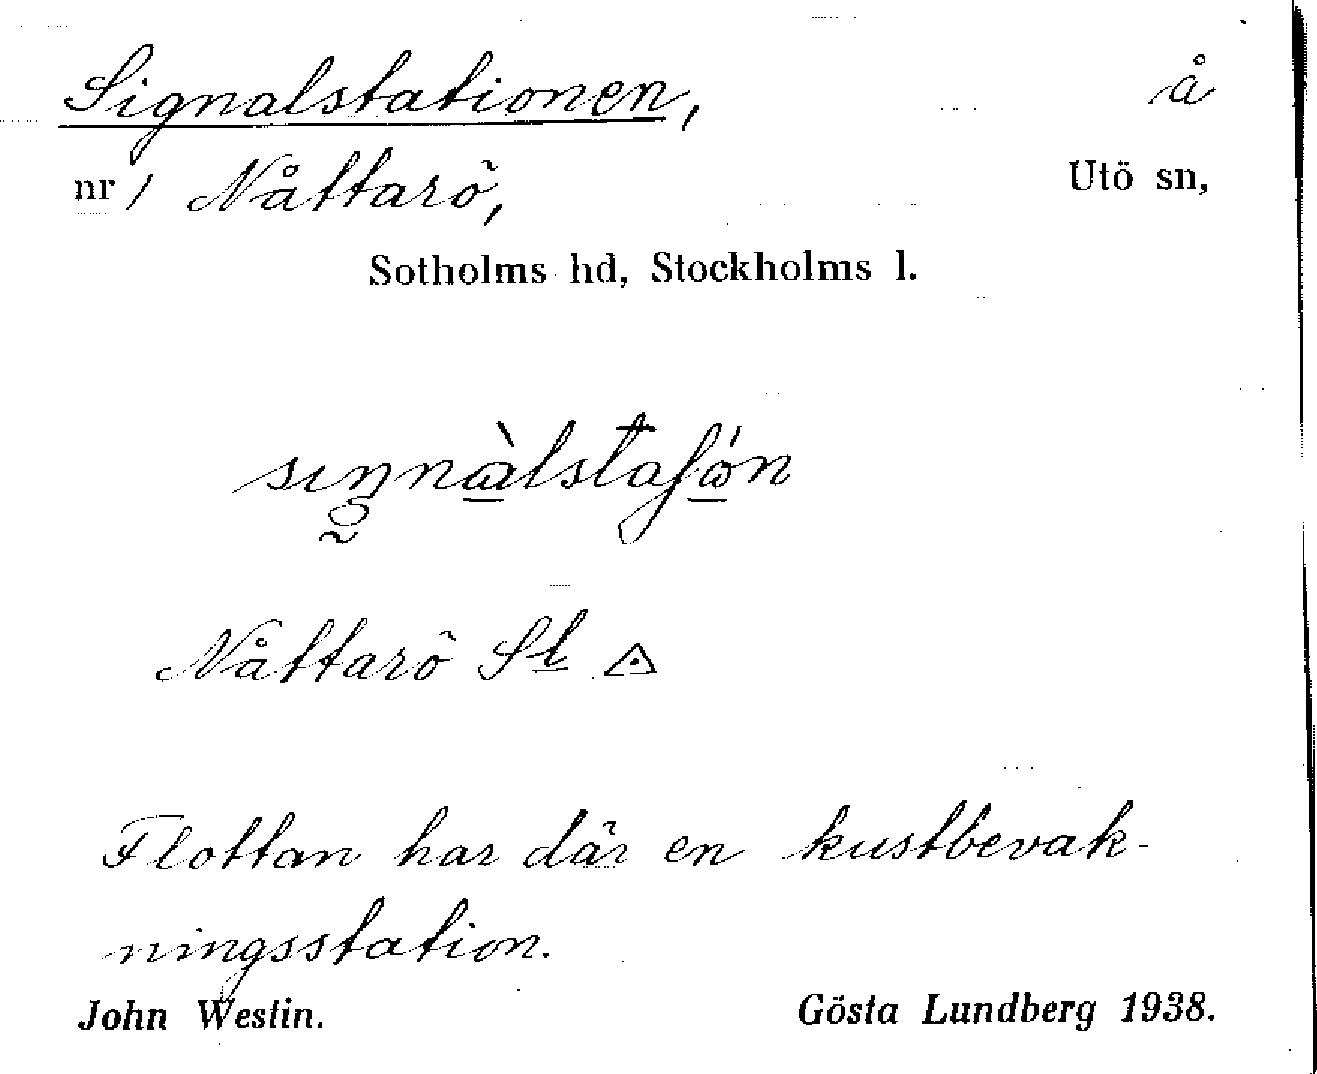 Signalstationen, å
nr 1 Nåttarö, Utö sn,
Sotholms hd, Stockholms l.
Nåttarö St △
Flottan har där en kustbevak-
ningsstation.
John Westin. Gösta Lundberg 1938.